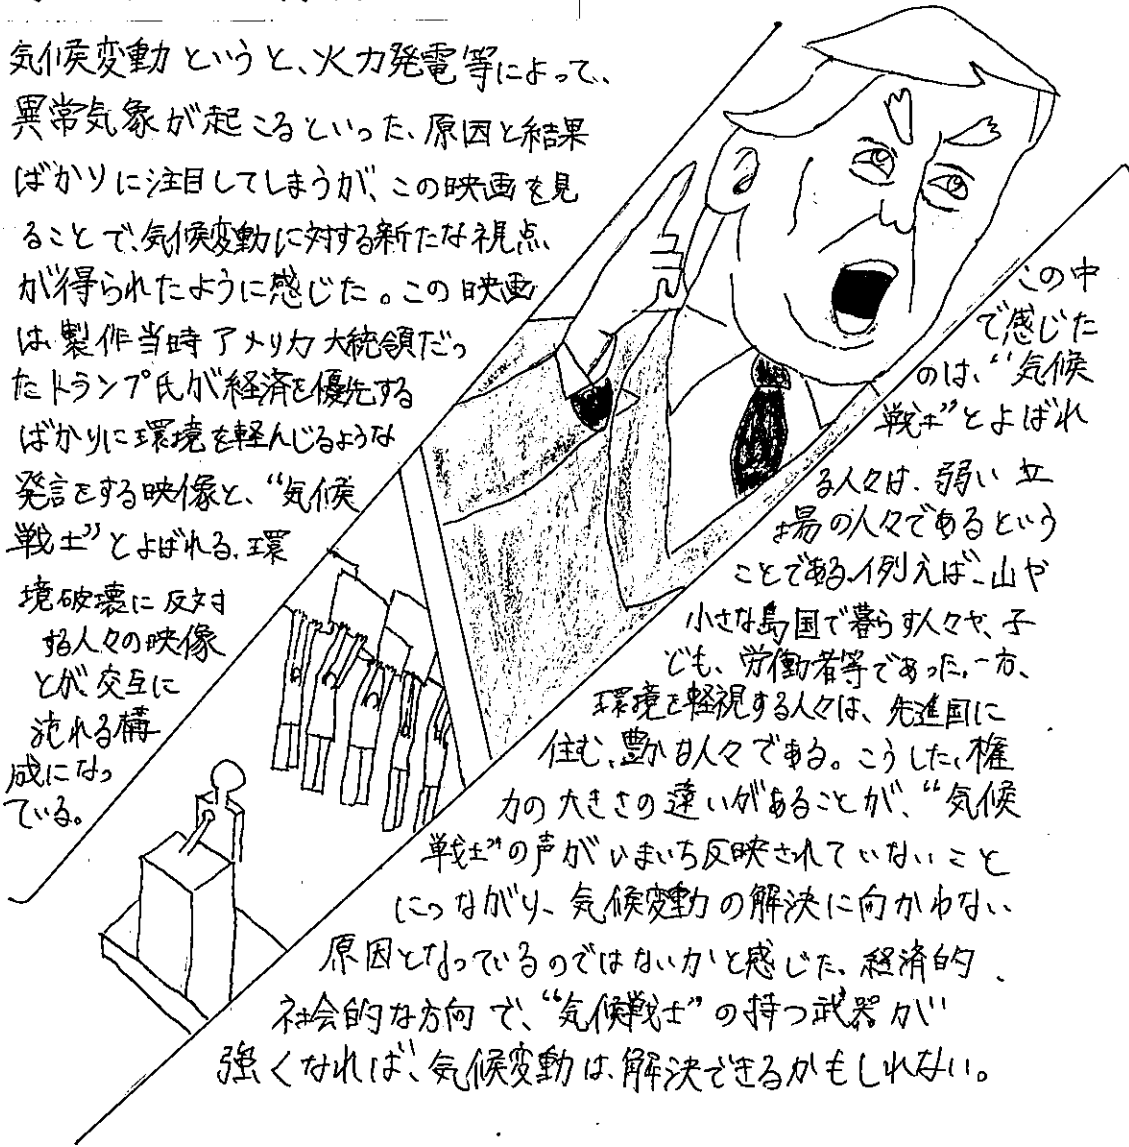 気候変動というと、火力発電等によって、
異常気象が起こるといった、原因と結果
ばかりに注目してしまうが、この映画を見
ることで、気候変動に対する新たな視点
が得られたように感じた。この映画
は、製作当時アメリカ大統領だっ
たトランプ氏が経済を優先する
ばかりに環境を軽んじるような
発言をする映像と、“気候
戦士”とよばれる、環
境破壊に反対
する人々の映像
とが交互に
流れる構
成になっ
ている。
この中
で感じた
のは、“気候
戦士”とよばれ
る人々は、弱い立
場の人々であるという
ことである。例えば、山や
小さな島国で暮らす人々や、子
ども、労働者等であった。一方、
環境を軽視する人々は、先進国に
住む、豊かな人々である。こうした、権
力の大きさの違いがあることが、“気候
戦士”の声がいまいち反映されていないこと
につながり、気候変動の解決に向かわない
原因となっているのではないかと感じた。経済的、
社会的な方向で、“気候戦士”の持つ武器が
強くなれば、気候変動は、解決できるかもしれない。